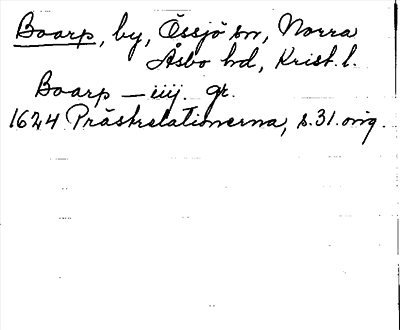 Boarp, by, Össjö sn, Norra
Åsbo hd, Krist. l.
Boarp — iiij. gr.
1624 Prästrelationerna, s. 31. orig.